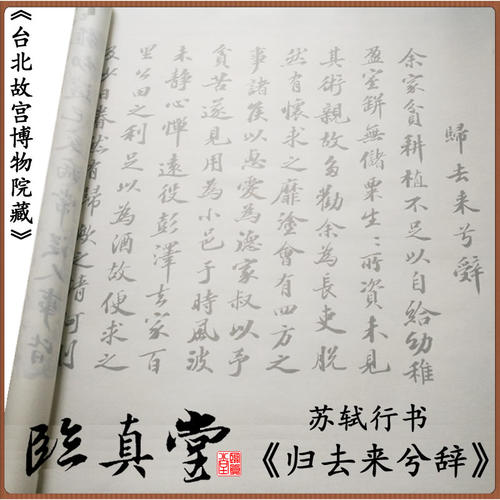 《台北故宫博物院藏》
歸去来兮辭
余家貧耕植不足以自給幼稚
盈室缾無儲粟生〻所資未見
其術親故多勸余為長吏脫
然有懷求之靡塗會有四方之
事諸侯以惠愛為德家叔以予
貧苦遂見用為小邑于時風波
未静心憚遠役彭澤去家百
里公田之利足以為酒故便求之
及少日眷然有歸歟之情何則
臨真堂
苏轼行书
《归去来兮辞》